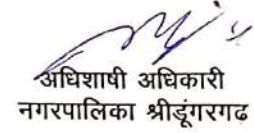 अधिशाषी अधिकारी
नगरपालिका श्रीडूंगरगढ़